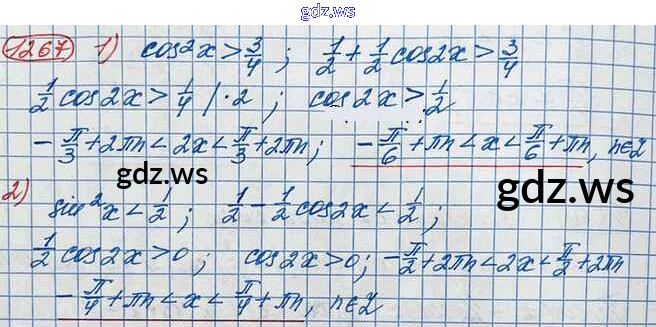 gdz.ws
1267 1) cos²x > 3/4 ; 1/2 + 1/2 cos2x > 3/4
1/2 cos2x > 1/4 | · 2 ; cos2x > 1/2
-π/3 + 2πn < 2x < π/3 + 2πn ; -π/6 + πn < x < π/6 + πn, n∈Z
gdz.ws
gdz.ws
2) sin²x < 1/2 ; 1/2 - 1/2 cos2x < 1/2 ;
1/2 cos2x > 0 ; cos2x > 0 ; -π/2 + 2πn < 2x < π/2 + 2πn
-π/4 + πn < x < π/4 + πn, n∈Z
gdz.ws